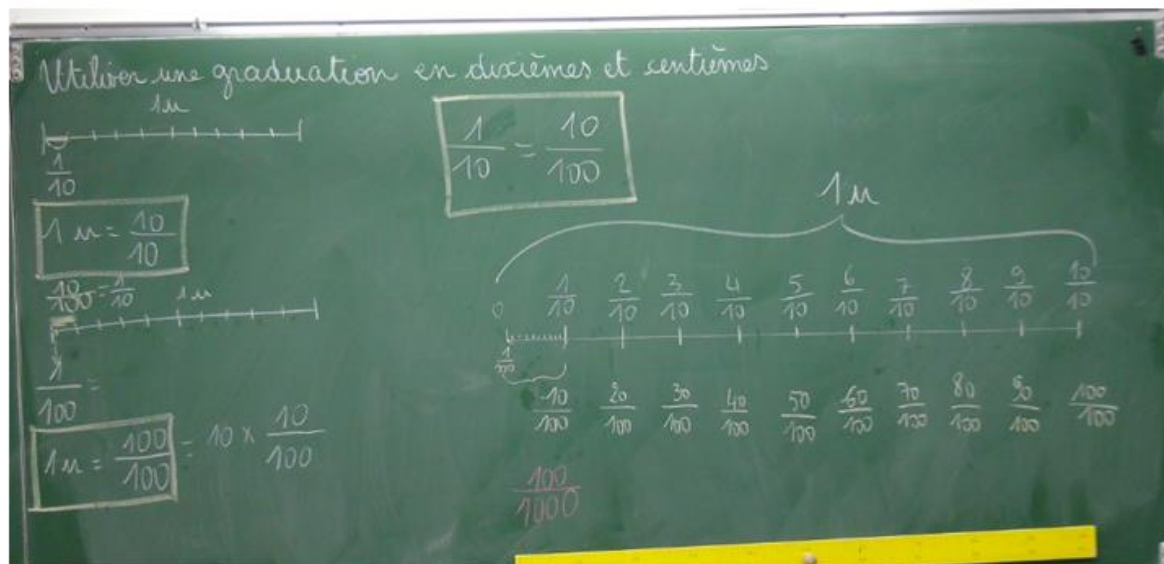 Utiliser une graduation en dixièmes et centièmes
1u
1/10
1 u = 10/10
10/100 = 1/10
1u
1/100 =
1u = 100/100 = 10 x 10/100
1/10 = 10/100
1u
0 1/10 2/10 3/10 4/10 5/10 6/10 7/10 8/10 9/10 10/10
1/100
10/100 20/100 30/100 40/100 50/100 60/100 70/100 80/100 90/100 100/100
100/1000